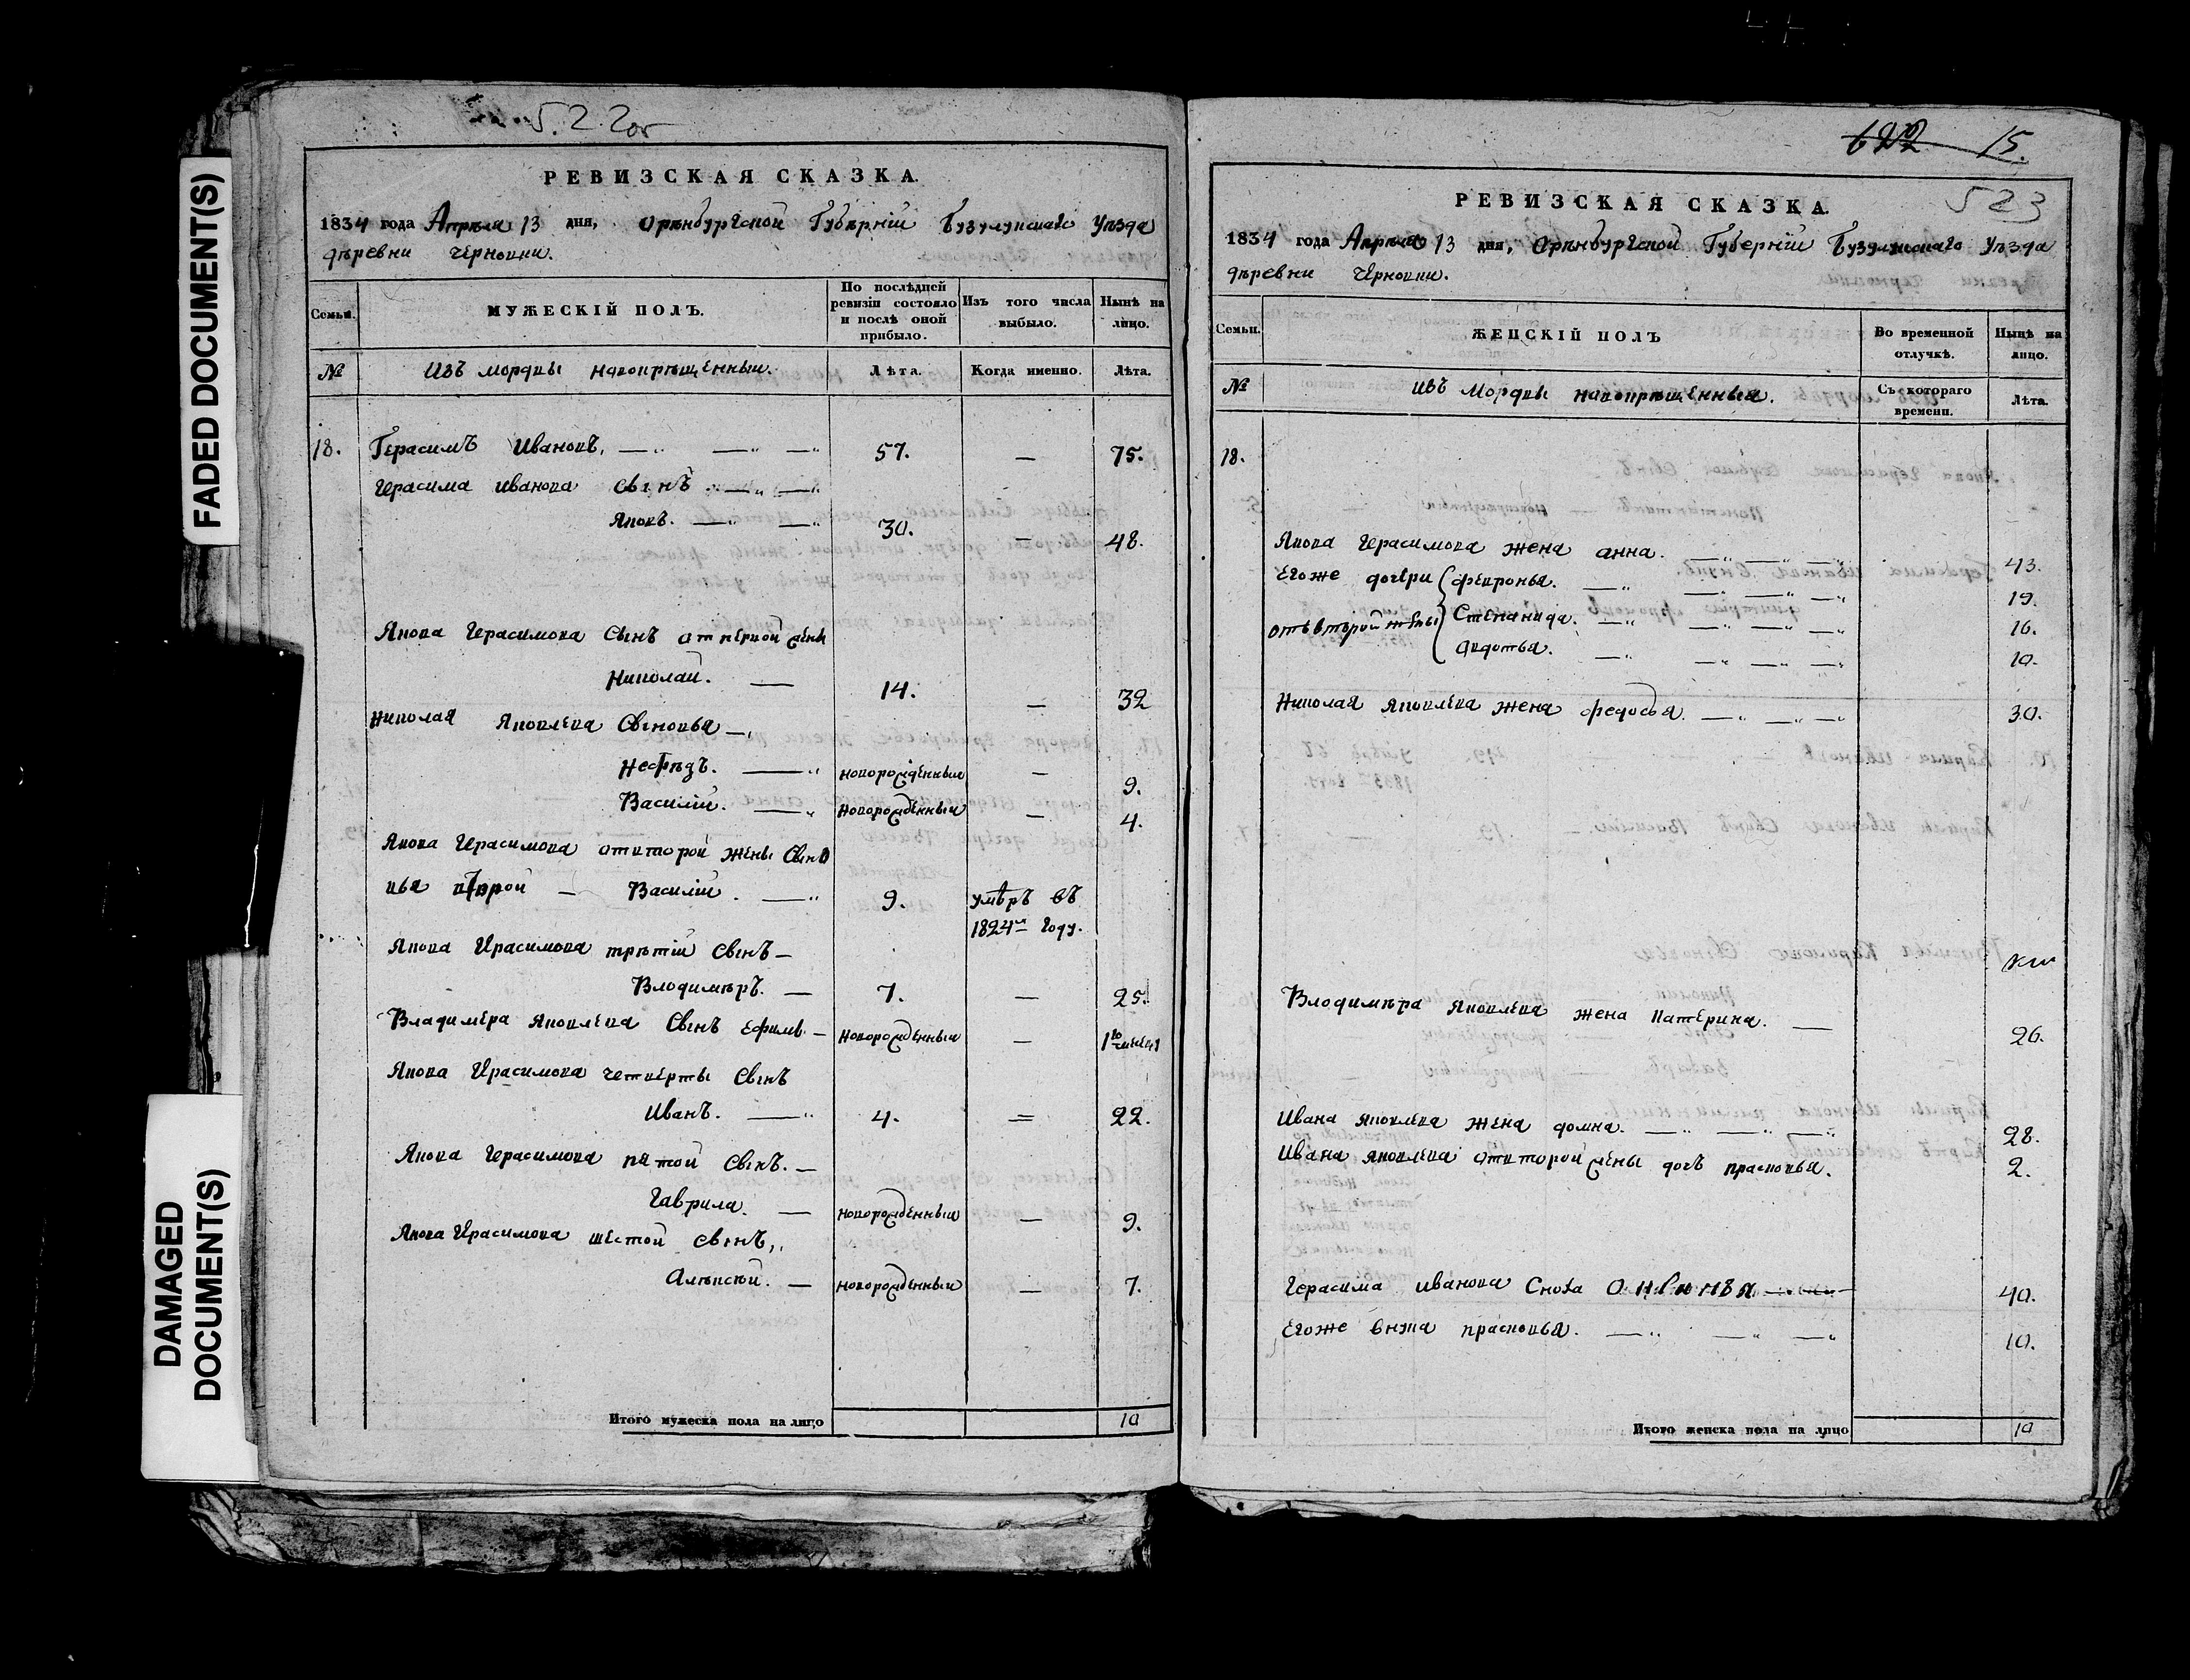 FADED DOCUMENT(S)
DAMAGED DOCUMENT(S)
522об
РЕВИЗСКАЯ СКАЗКА.
1834 года Апреля 13 дня, Оренбургской Губернiи Бузулукскаго Уезда
деревни Черновки.
Семьи.
МУЖЕСКIЙ ПОЛЪ.
По последней ревизiи состояло и после оной прибыло.
Изъ того числа выбыло.
Ныне на лицо.
№
Изъ мордвы новокрещенныи.
Лѣта.
Когда именно.
Лѣта.
18. Герасимъ Ивановъ, 57. — 75.
Герасима Иванова Сынъ
Яковъ. 30. — 48.
Якова Герасимова Сынъ от первой жены
Николай. — 14. — 32
Николая Яковлева Сыновья
Нефедъ. новорожденныи — 9.
Василiй. новорожденныи — 4.
Якова Герасимова от второй жены Сыно
вья второй — Василiй. 9. умеръ въ
1824м году.
Якова Герасимова третiй Сынъ —
Влодимеръ. — 7. — 25.
Владимера Яковлева Сынъ Ефимъ. — новорожденныи —
Якова Герасимова четверты Сынъ
Иванъ. 4. = 22.
Якова Герасимова пятой Сынъ. —
Гаврила. — новорожденныи — 9.
Якова Герасимова шестой Сынъ,
Алексей. — новорожденныи — 7.
Итого мужеска пола на лицо 10
622 15.
523
РЕВИЗСКАЯ СКАЗКА.
1834 года Апреля 13 дня, Оренбургской Губернiи Бузулукскаго Уезда
деревни Черновки.
Семьи.
ЖЕНСКIЙ ПОЛЪ
Во временной отлучкѣ.
Ныне на лицо.
№
Изъ Мордвы новокрещенныя.
Съ котораго времени.
Лѣта.
18.
Якова Герасимова жена Анна. 43.
Егоже дочери Февронья. 19.
от второй жены Степанида. 16.
Авдотья. 10.
Николая Яковлева жена Федосья. 30.
Влодимера Яковлева жена Катерина. — 26.
Ивана Яковлева жена Домна. 28.
Ивана Яковлева от второй жены дочь Прасковья. 2.
Герасима Иванова Сноха 40.
Егоже внука Прасковья. 10.
Итого женска пола на лицо 10